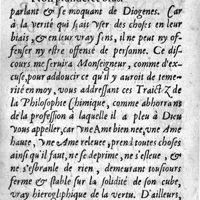 parlant & se moquant de Diogenes. Car
à la verité qui sçait vser des choses en leur
biais, & en leur vray sens, il ne peut ny of-
fenser ny estre offensé de personne. Ce dis-
cours me seruira Monseigneur, comme d'ex-
cuse, pour addoucir ce qu'il y auroit de teme-
rité en moy, vous addressant ces Traictez de
la Philosophie Chimique, comme abhorrans
de la profession à laquelle il a pleu à Dieu
vous appeller, car vne Ame bien nee, vne Ame
haute, vne Ame releuee, prend toutes choses
ainsi qu'il faut, ne se deprime, ne s'esleue, &
ne s'esbranle de rien, demeurant tousiours
ferme & stable sur la solidité de son cube,
vray hieroglphique de la vertu. D'ailleurs,